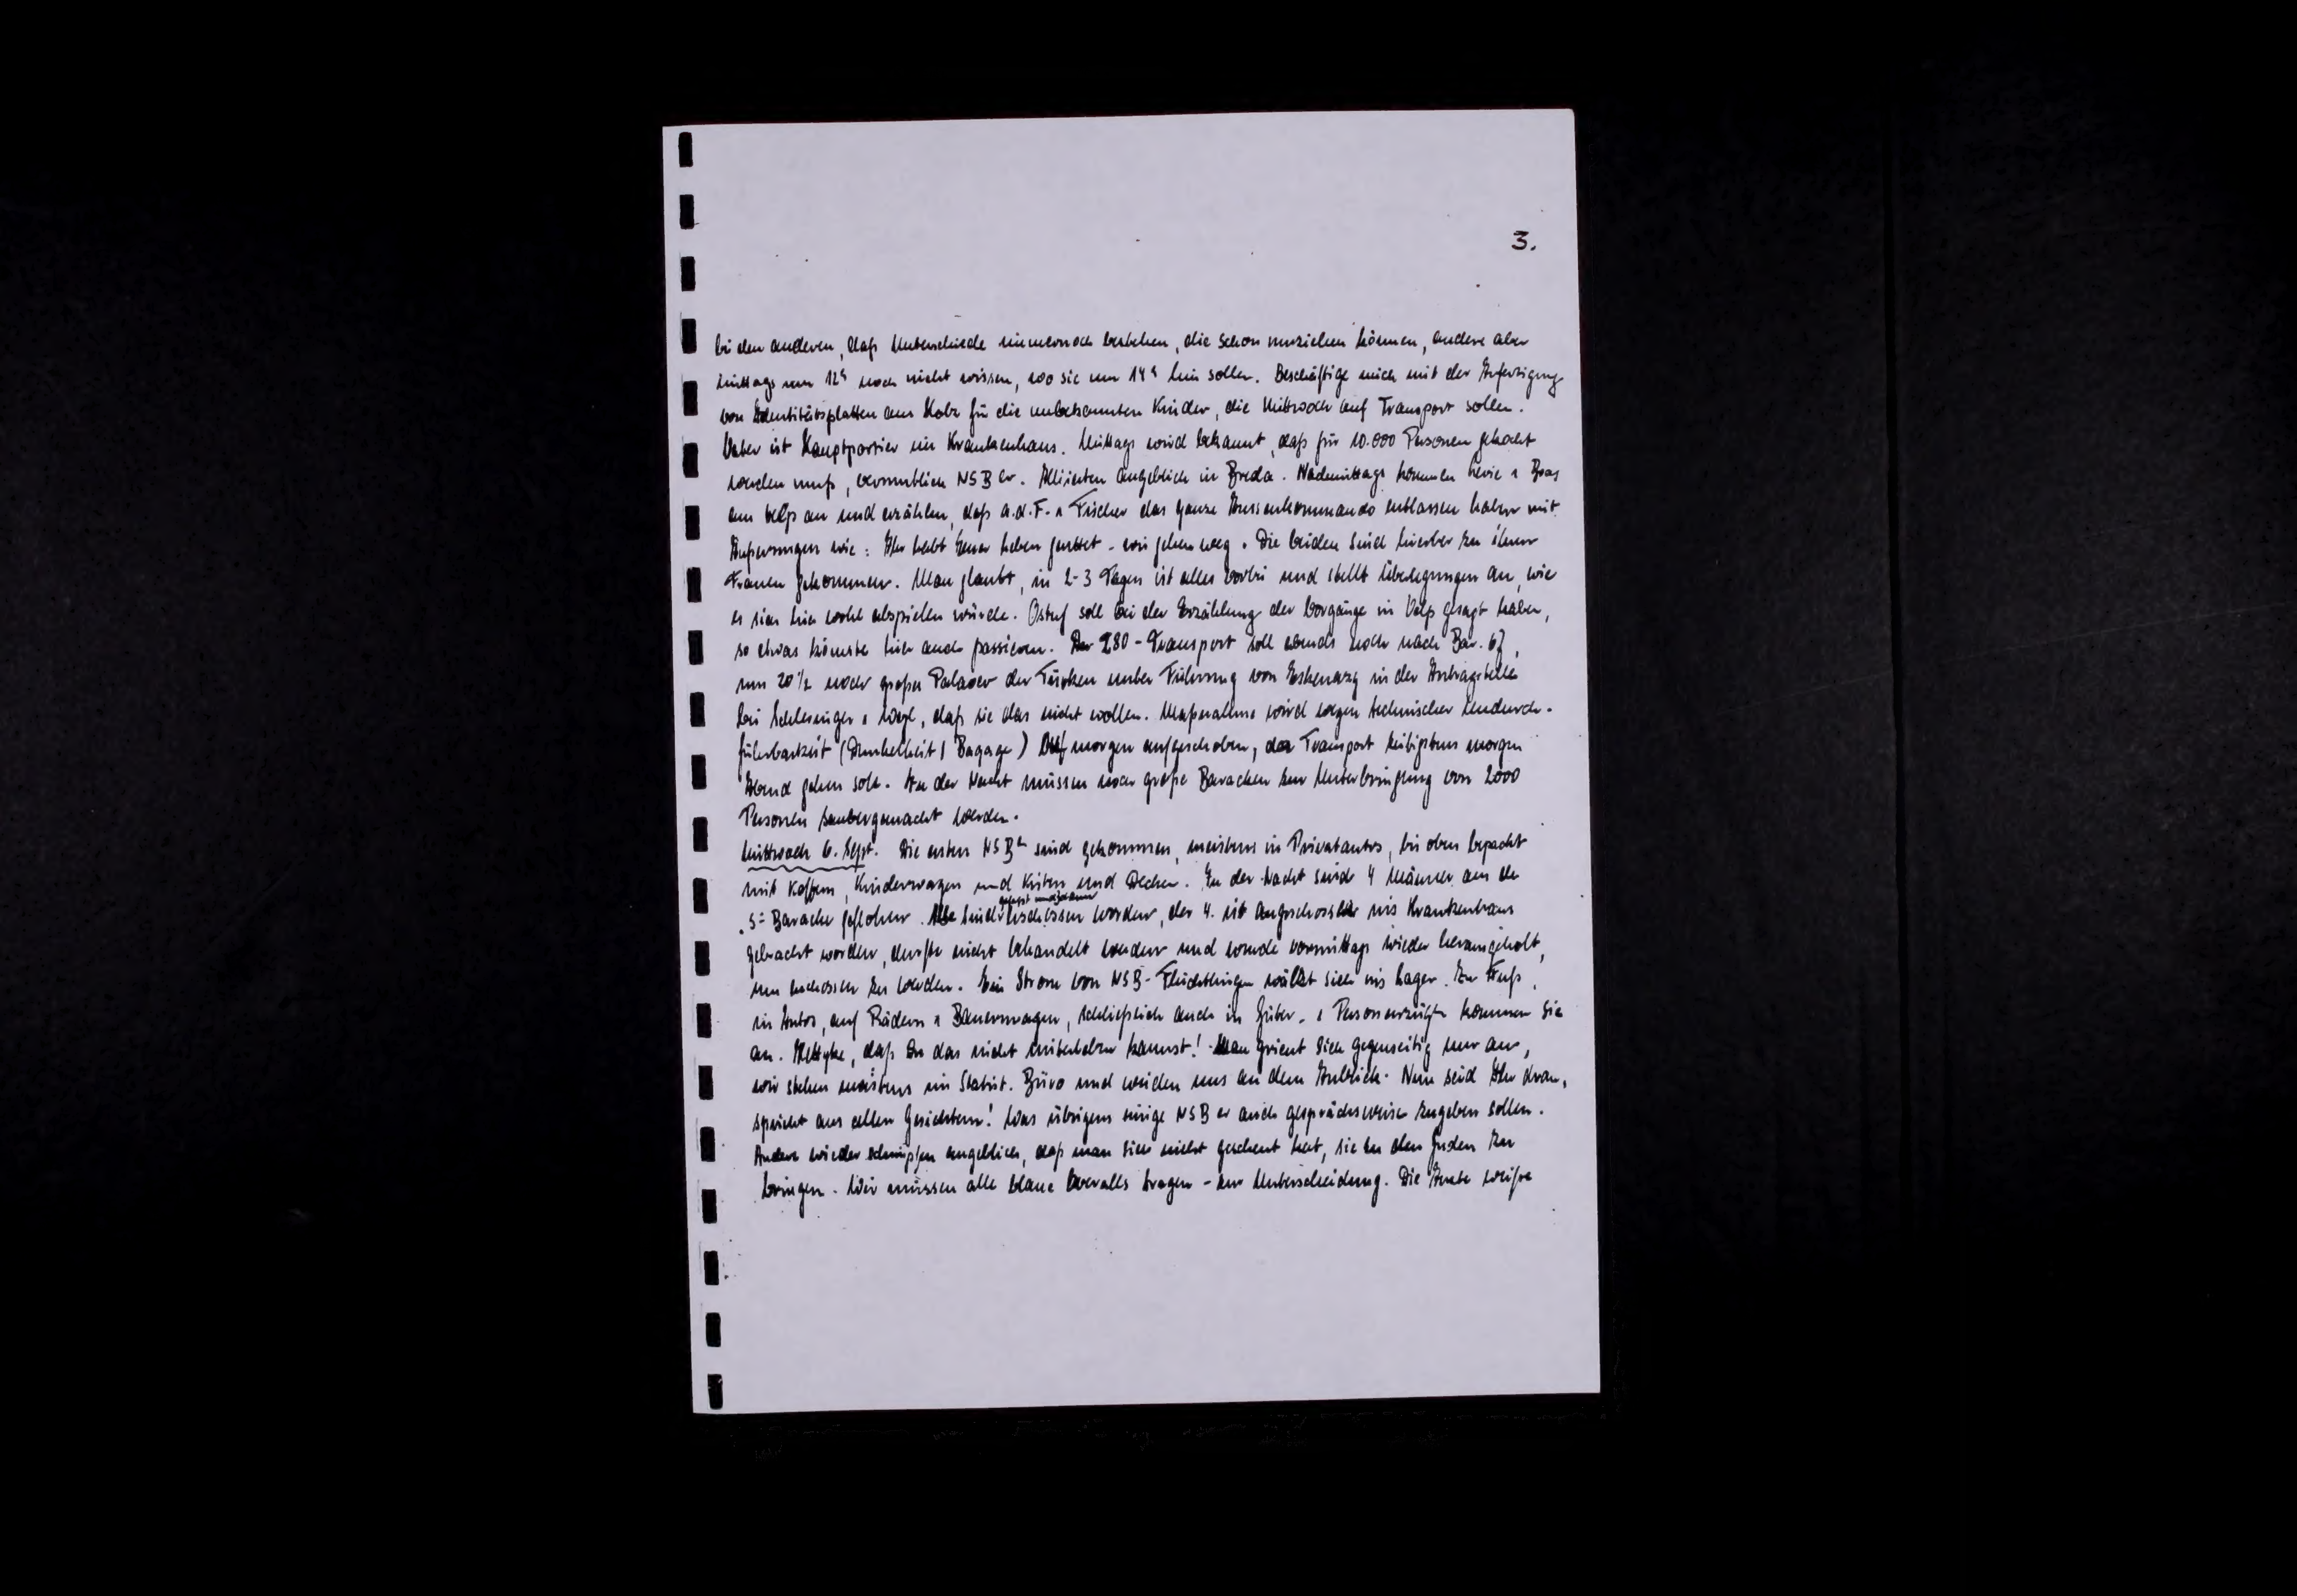 3.
bei den anderen, daß Unterschiede immernoch bestehen, die schon umziehen können, andere aber
mittags um 12ʰ noch nicht wissen, wo sie um 14ʰ hin sollen. Beschäftige mich mit der Anfertigung
von Identitätsplatten aus Holz für die unbekannten Kinder, die Mittwoch auf Transport sollen.
Vater ist Hauptportier im Krankenhaus. Mittags wird bekannt, daß für 10.000 Personen gekocht
werden muß, vermutlich NSBer. Alliierten angeblich in Breda. Nachmittags kommen
aus Velp an und erzählen, daß a.d.F. u Fischer das ganze Aussenkommando entlassen haben mit
Äußerungen wie: Ihr habt Euer Leben gerettet - wir gehen weg. Die beiden sind hierher zu ihren
Frauen gekommen. Man glaubt, in 2-3 Tagen ist alles vorbei und stellt Überlegungen an, wie
es sich hier wohl abspielen würde. Ostuf soll bei der Erzählung der Vorgänge in Velp gesagt haben,
so etwas könnte hier auch passieren. Der 280-Transport soll abends noch nach Bar. 67,
um 20½ noch großes Palaver der Türken unter Führung von Eskenazy in der Antragstelle
bei Schlesinger u , daß sie das nicht wollen. Maßnahme wird wegen technischer Undurch-
führbarkeit (Dunkelheit, Bagage) auf morgen aufgeschoben, da Transport frühestens morgen
Abend gehen soll. In der Nacht müssen noch große Baracken zur Unterbringung von 2000
Personen saubergemacht werden.
Mittwoch 6. Sept. Die ersten NSBer sind gekommen, meistens in Privatautos, bis oben bepackt
mit Koffern, Kinderwagen und Kisten und Decken. In der Nacht sind 4 Männer aus der
S=Baracke geflohen. Alle sind gefasst und dann erschossen worden, der 4. ist angeschossen ins Krankenhaus
gebracht worden, durfte nicht behandelt werden und wurde vormittags wieder herausgeholt,
um erschossen zu werden. Ein Strom von NSB-Flüchtlingen wälzt sich ins Lager. Zu Fuß,
in Autos, auf Rädern u Bauernwagen, schließlich auch in Güter- u Personenzügen kommen sie
an. , daß Du das nicht miterleben kannst! Man grient sich gegenseitig nur an,
wir stehen meistens im Statist. Büro und weiden uns an dem Anblick. Nun seid Ihr dran,
spricht aus allen Gesichtern! Was übrigens einige NSBer auch gesprächsweise zugeben sollen.
Andere wieder schimpfen angeblich, daß man sich nicht gescheut hat, sie zu den Juden zu
bringen. Wir müssen alle blaue Overalls tragen - zur Unterscheidung. Die Ärzte weiße